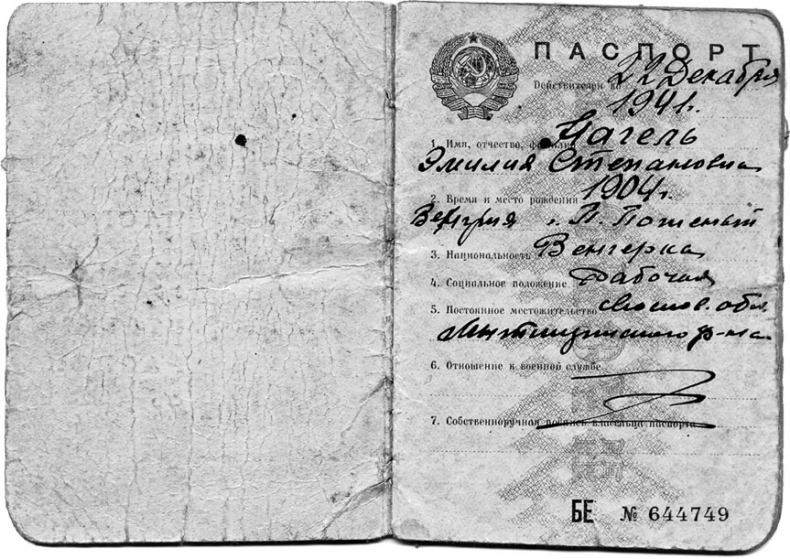 ПАСПОРТ
Действителен по 22 Декабря
1941г.
1. Имя, отчество, фамилия Нагель
Эмилия Степановна
2. Время и место рождения 1904г.
Венгрия
3. Национальность Венгерка
4. Социальное положение Рабочая
5. Постоянное местожительство Москов. обл.
Мытищинского р-на
6. Отношение к военной службе
7. Собственноручная подпись владельца паспорта
БЕ № 644749